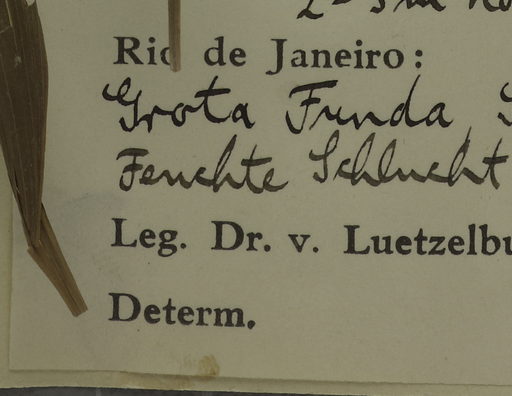 Rio de Janeiro:
Grota Funda
Feuchte Schlucht
Leg. Dr. v. Luetzelbu
Determ.